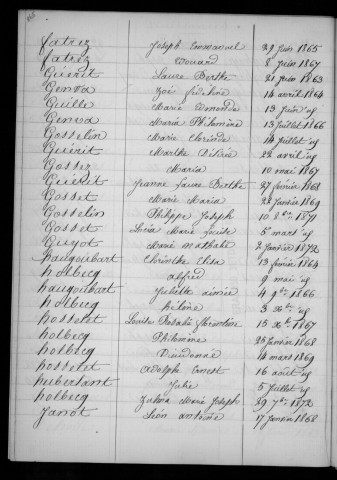 fatrez Joseph Emmanuel 29 Juin 1865
fatrez Edouard 8 Juin 1867
Guérit Laure Berthe 21 Juin 1863
Genva Zoé fidéline 14 avril 1864
Guille Marie Elmonde 13 Juin dg
Genva Marie Philomène 13 Juillet 1866
Gosselin Marie Clorinde 14 Juillet dg
Guérit Marthe Désirée 22 avril dg
Gossez Maria 10 mai 1867
Guérit Jeanne Laure Berthe 27 février 1868
Gosset Marie Maria 22 Janvier 1869
Gosselin Philippe Joseph 10 8bre 1871
Gosset Marie Louise 5 mars dg
Guyot Marie Mathilde 2 Janvier 1872
haugoubart Clorinthe Elisa 13 février 1864
holbecq alfred 9 mai dg
haugoubart Juliette aimée 4 9bre 1866
holbecq hélène 3 Xbre dg
hosselet Louise florentine 15 Xbre 1867
holbecq Philomène 25 Janvier 1868
holbecq Dieudonné 14 mars 1869
hosselet adolphe ernest 16 août dg
hubersant Julie 5 Juillet dg
holbecq Zulma Marie Joseph 29 7bre 1872
Janot Léon antoine 17 Janvier 1868